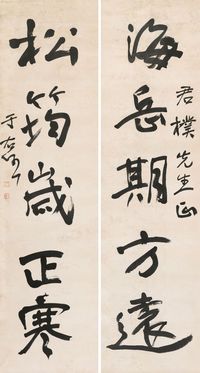 海岳期方遠
君樸先生正
松筠歲正寒
于右任